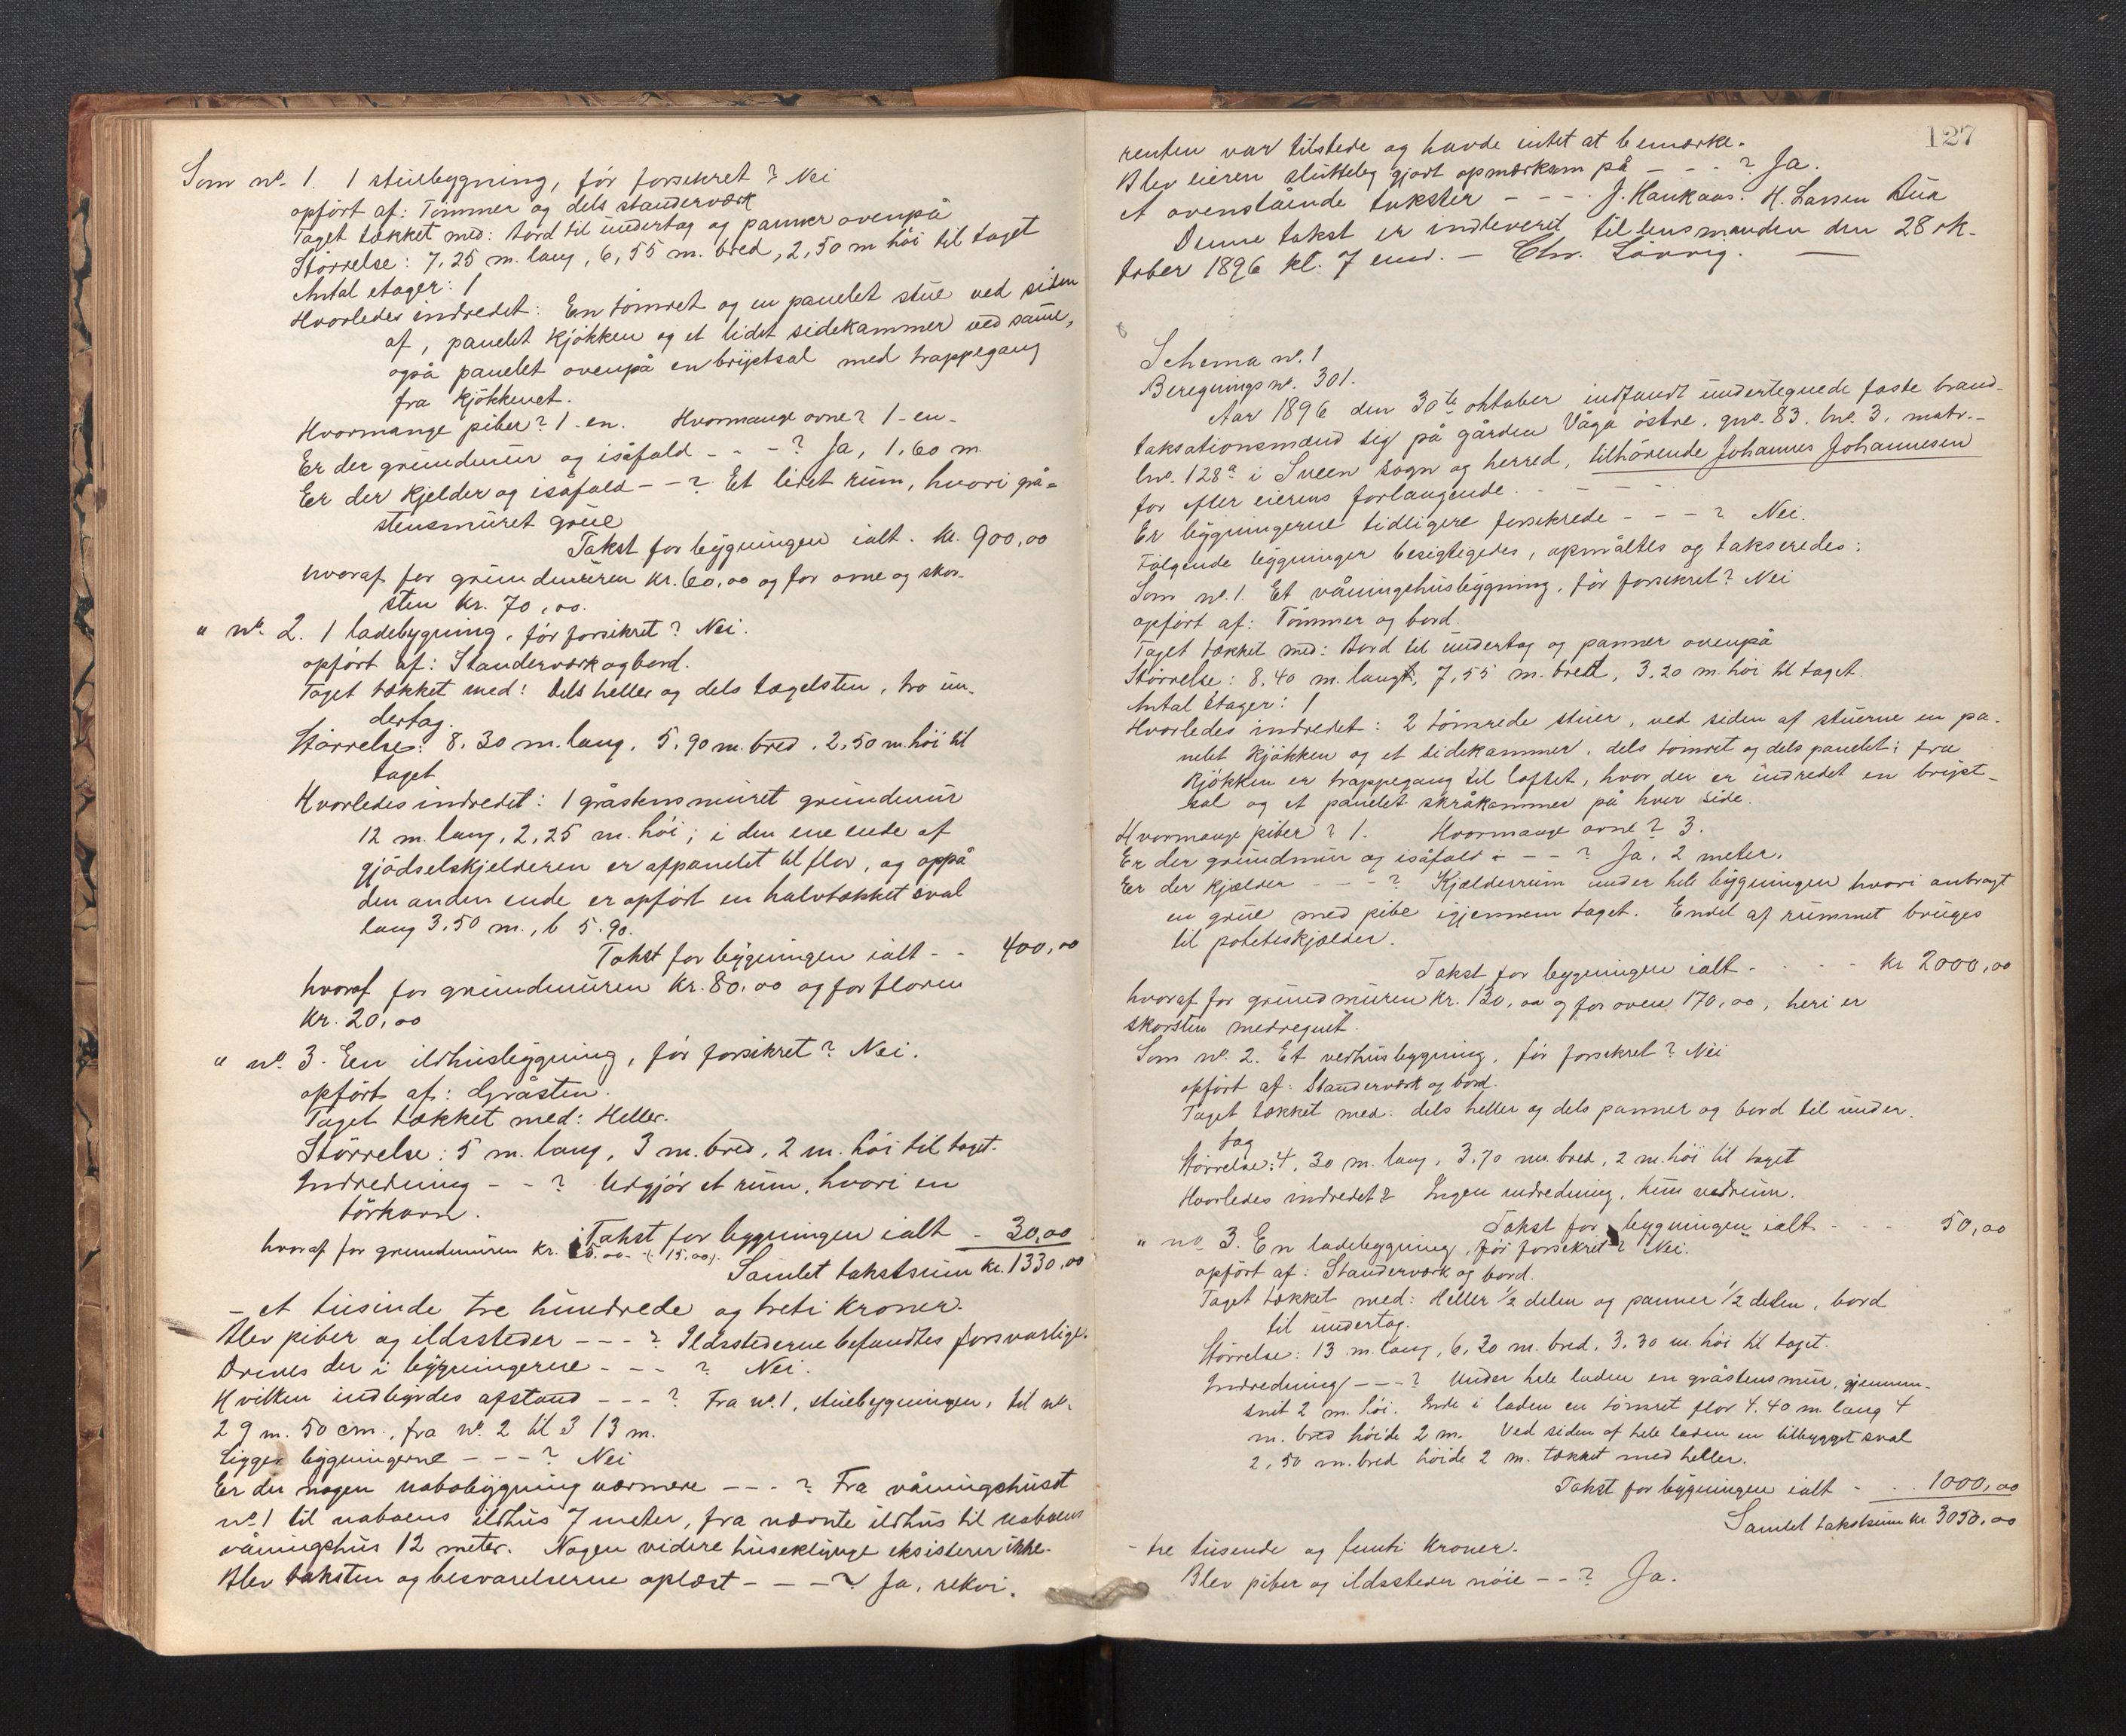 Som no. 1. 1 stuebygning, før forsikret? Nei
opført af: Tømmer og dels standerværk
Taget tækket med: bord til undertag og panner ovenpå
Størrelse: 7,25 m. lang, 6,55 m. bred, 2,50 m høi til taget
Antal etager: 1
Hvorledes indredet: En tømret og en panelet stue ved siden
af, panelet kjøkken og et lidet sidekammer ved samme,
også panelet ovenpå en brystsal med trappegang
fra kjøkkenet.
Hvormange piber? 1 - en. Hvormange ovne? 1 - en -
Er der grundmur og isåfald - - - ? Ja, 1,60 m.
Er der kjelder og isåfald - - ? Et lidet rum, hvori grå=
stensmuret grue
Takst for bygningen ialt. kr. 900,00
hvoraf for grundmuren kr. 60,00 og for ovne og skor-
sten kr. 70,00.
" no. 2. 1 ladebygning, før forsikret? Nei.
opført af: Standerværk og bord.
Taget tækket med: Dels heller og dels tægelsten, tro un-
dertag.
Størrelse: 8,30 m. lang, 5,90 m. bred, 2,50 m. høi til
taget
Hvorledes indredet: 1 gråstensmuret grundmur
12 m. lang, 2,25 m. høi; i den ene ende af
gjødselskjelderen er afpanelet til flor, og oppå
den anden ende er opført en halvtækket sval
lang 3,50 m., b 5.90.
Takst for bygningen ialt - - 400,00
hvoraf for grundmuren kr. 80,00 og for floren
kr. 20,00
" no. 3. Een ildhusbygning, før forsikret? Nei.
opført af: Gråsten.
Taget tækket med: Heller.
Størrelse: 5 m. lang, 3 m. bred, 2 m. høi til taget.
Indredning - - ? Udgjør et rum, hvori en
tørkovn.
Takst for bygningen ialt - 30,00
hvoraf for grundmuren kr. 15.00 - (15,00).
Samlet takstsum kr. 1330,00
- et tusinde tre hundrede og treti kroner.
Blev piber og ildssteder - - - ? Ildsstederne befandtes forsvarlige.
Drives der i bygningerne - - - ? Nei.
Hvilken indbyrdes afstand - - - ? Fra no. 1, stuebygningen, til no.
2 9 m. 50 cm., fra no. 2 til 3 13 m.
Ligger bygningerne - - - ? Nei
Er der nogen nabobygning nærmere - - - ? Fra våningshuset
no. 1 til naboens ildhus 7 meter, fra nævnte ildhus til naboens
våningshus 12 meter. Nogen videre huseklynge eksisterer ikke.
Blev taksten og besvarelserne oplæst - - - ? Ja, rekvi-
127
renten var tilstede og havde intet at bemærke.
Blev eieren sluttelig gjort opmærksom på - - - ? Ja.
At ovenstående takster - - - . J. Haukaas. H. Larsen Dua
Denne takst er indleveret til lensmanden den 28 ok-
tober 1896 kl. 7 em. - Chr. Løvvig. -
Schema no. 1
Beregnings no. 301.
Aar 1896 den 30te oktober indfandt undertegnede faste brand-
taksationsmænd sig på gården Våga østre, gno. 83, bno. 3, matr.-
lno. 128a i Sveen sogn og herred, tilhørende Johannes Johannesen
for efter eierens forlangende. - - - -
Er bygningerne tidligere forsikrede - - - ? Nei.
Følgende bygninger besigtigedes, opmåltes og takseredes:
Som no. 1. Et våningshusbygning, før forsikret? Nei
opført af: Tømmer og bord.
Taget tækket med: Bord til undertag og panner ovenpå
Størrelse: 8,40 m. langt, 7,55 m. bredt, 3,20 m. høi til taget.
Antal Etager: 1
Hvorledes indredet: 2 tømrede stuer, ved siden af stuerne en pa-
nelet kjøkken og et sidekammer, dels tømret og dels panelet; fra
kjøkken er trappegang til loftet, hvor der er indredet en bryst-
sal og et panelet skråkammer på hver side.
Hvormange piber? 1. Hvormange ovne? 3.
Er der grundmur og isåfald - - - ? Ja, 2 meter.
Er der kjælder - - - ? Kjælderrum under hele bygningen hvori anbragt
en grue med pibe igjennem taget. Endel af rummet bruges
til poteteskjælder.
Takst for bygningen ialt - - - - kr 2000,00
hvoraf for grundmuren kr. 130,00 og for ovene 170,00, heri er
skorsten medregnet.
Som no. 2. Et vedhusbygning, før forsikret? Nei
opført af: Standerværk og bord.
Taget tækket med: dels heller og dels panner og bord til under-
tag
Størrelse: 4,30 m. lang, 3,70 m. bred, 2 m. høi til taget
Hvorledes indredet? Ingen indredning, kun vedrum.
Takst for bygningen ialt - - - 50,00
" no. 3. En ladebygning, før forsikret? Nei.
opført af: Standerværk og bord.
Taget tækket med: Heller 1/2 delen og panner 1/2 delen, bord
til undertag.
Størrelse: 13 m. lang, 6,30 m. bred, 3,30 m. høi til taget.
Indredning - - - ? Under hele laden en gråstensmur, gjennem-
snit 2 m. høi. Inde i laden en tømret flor 4.40 m lang 4
m. bred høide 2 m. Ved siden af hele laden en tilbygget sval
2,50 m. bred høide 2 m. tækket med heller.
Takst for bygningen ialt - - - 1000,00
Samlet takstsum kr 3050,00
- tre tusende og femti kroner.
Blev piber og ildssteder nøie - - ? Ja.